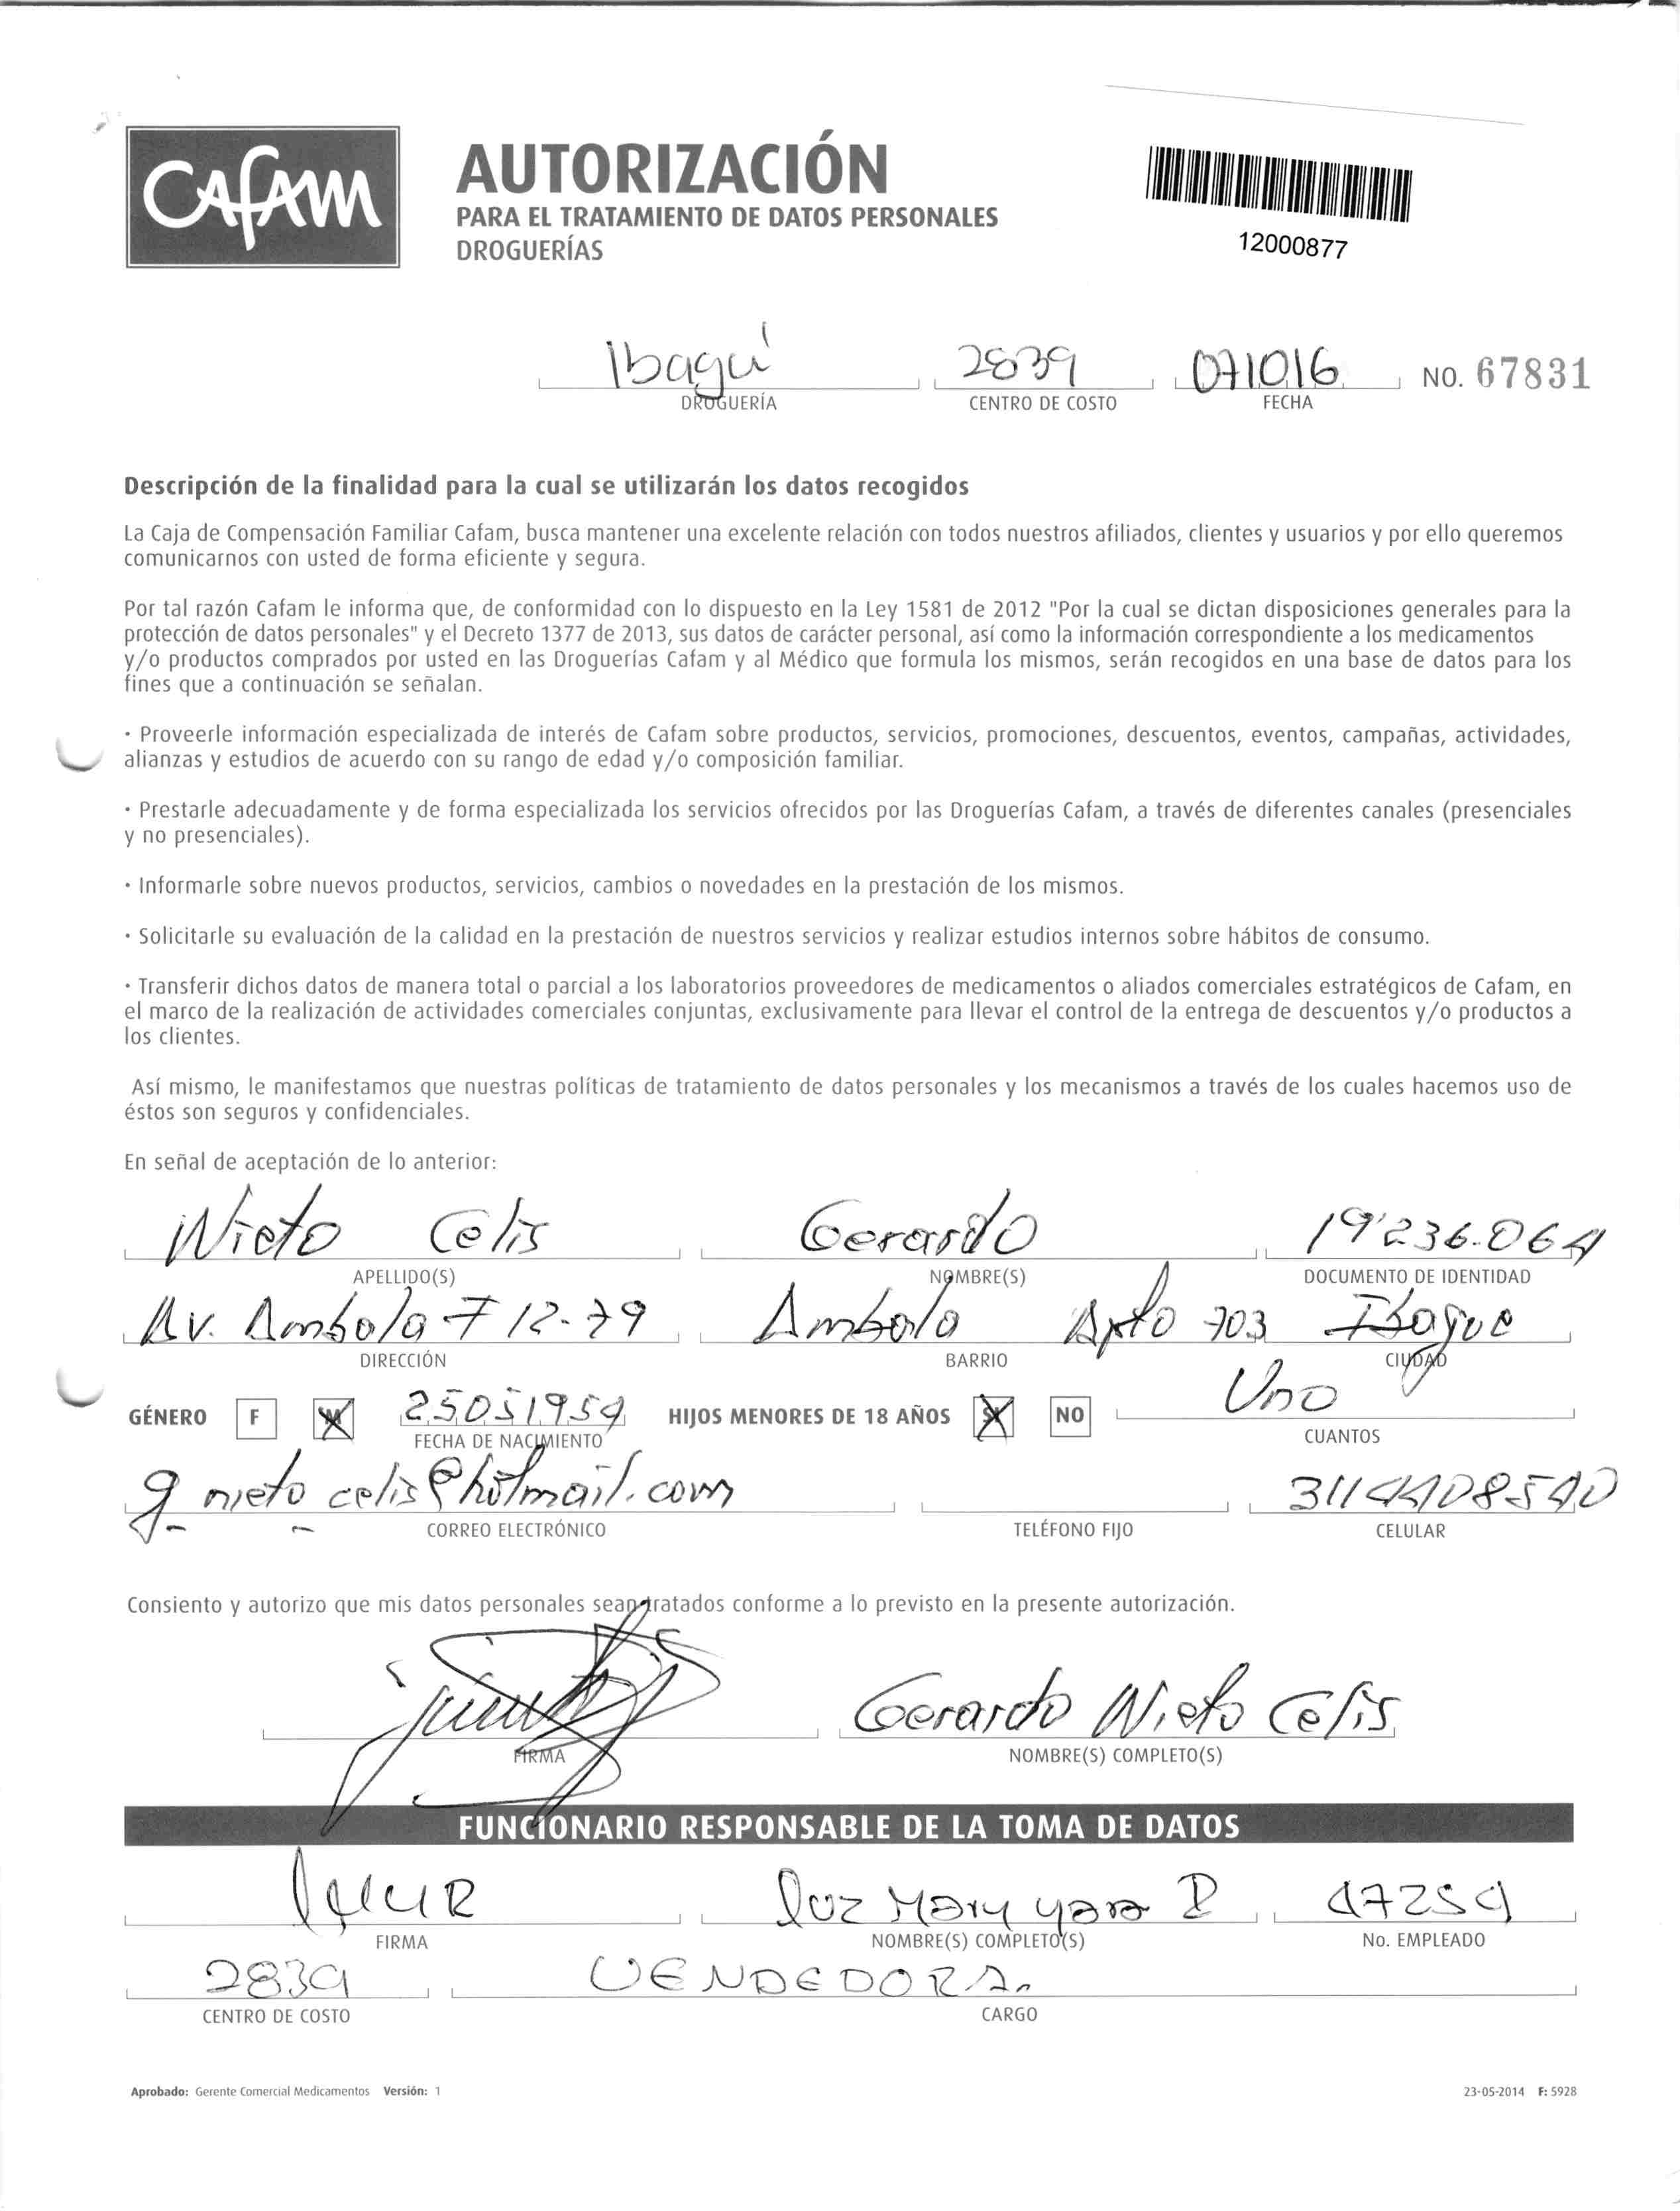 CAFAM
AUTORIZACIÓN
PARA EL TRATAMIENTO DE DATOS PERSONALES
DROGUERÍAS
12000877
Ibagué 2839 071016 NO. 67831
DROGUERÍA CENTRO DE COSTO FECHA
Descripción de la finalidad para la cual se utilizarán los datos recogidos
La Caja de Compensación Familiar Cafam, busca mantener una excelente relación con todos nuestros afiliados, clientes y usuarios y por ello queremos
comunicarnos con usted de forma eficiente y segura.
Por tal razón Cafam le informa que, de conformidad con lo dispuesto en la Ley 1581 de 2012 "Por la cual se dictan disposiciones generales para la
protección de datos personales" y el Decreto 1377 de 2013, sus datos de carácter personal, así como la información correspondiente a los medicamentos
y/o productos comprados por usted en las Droguerías Cafam y al Médico que formula los mismos, serán recogidos en una base de datos para los
fines que a continuación se señalan.
· Proveerle información especializada de interés de Cafam sobre productos, servicios, promociones, descuentos, eventos, campañas, actividades,
alianzas y estudios de acuerdo con su rango de edad y/o composición familiar.
· Prestarle adecuadamente y de forma especializada los servicios ofrecidos por las Droguerías Cafam, a través de diferentes canales (presenciales
y no presenciales).
· Informarle sobre nuevos productos, servicios, cambios o novedades en la prestación de los mismos.
· Solicitarle su evaluación de la calidad en la prestación de nuestros servicios y realizar estudios internos sobre hábitos de consumo.
· Transferir dichos datos de manera total o parcial a los laboratorios proveedores de medicamentos o aliados comerciales estratégicos de Cafam, en
el marco de la realización de actividades comerciales conjuntas, exclusivamente para llevar el control de la entrega de descuentos y/o productos a
los clientes.
Así mismo, le manifestamos que nuestras políticas de tratamiento de datos personales y los mecanismos a través de los cuales hacemos uso de
éstos son seguros y confidenciales.
En señal de aceptación de lo anterior:
Nieto Celis Gerardo 19'236.064
APELLIDO(S) NOMBRE(S) DOCUMENTO DE IDENTIDAD
Av. Ambala # 12-79 Ambala Apto 703 Ibague
DIRECCIÓN BARRIO CIUDAD
GÉNERO F M 25051954 HIJOS MENORES DE 18 AÑOS SI NO Uno
FECHA DE NACIMIENTO CUANTOS
g_nieto_celis@hotmail.com 3114408540
CORREO ELECTRÓNICO TELÉFONO FIJO CELULAR
Consiento y autorizo que mis datos personales sean tratados conforme a lo previsto en la presente autorización.
Gerardo Nieto Celis
FIRMA NOMBRE(S) COMPLETO(S)
FUNCIONARIO RESPONSABLE DE LA TOMA DE DATOS
luz Mary yara P 47259
FIRMA NOMBRE(S) COMPLETO(S) No. EMPLEADO
2839 VENDEDORA
CENTRO DE COSTO CARGO
Aprobado: Gerente Comercial Medicamentos Versión: 1 23-05-2014 F: 5928